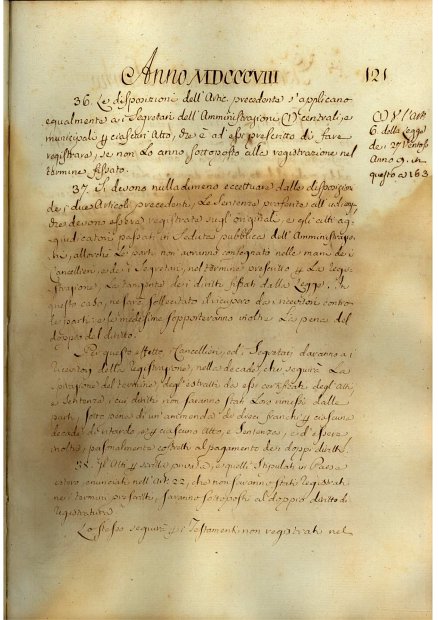 Anno MDCCCVIII
121
36. Le disposizioni dell'Artic. precedente s'applicano
egualmente ai Segretari dell'Amministrazione (1) centrali, e
municipali p ciascun Atto, che è ad essi prescritto di fare
registrare, se non lo anno sottoposto alla registrazione nel
termine fissato.
(1) V. l'Art.
6. della Legge
dei 27 Ventoso
Anno 9. in
questo a 163.
37. Si devono nulladimeno eccettuare dalle disposizioni
dei due Articoli precedenti, le Sentenze proferite all'udienza,
che devono essere registrate sugl'originali, e gli atti d'ag-
giudicazione passati in Seduta pubblica dell'Amministrazio-
ni, allorchè le parti non avranno consegnato nelle mani dei
Cancellieri, e dei Segretari, nel termine prescritto p la regi-
strazione, la tangente dei diritti fissati dalla Legge. In
questo caso, ne sarà sollecitato il ricupero dai ricevitori contro
le parti; e le medesime sopporteranno inoltre la pena del
doppio del diritto.
Per questo effetto, i Cancellieri, ed i Segretari daranno ai
Ricevitori della Registrazione, nella decade, che seguirà la
spirazione del termine, degl'estratti da essi certificati degli Atti,
e Sentenze, i cui diritti non saranno stati loro rimessi dalle
parti, sotto pena di un'ammenda di dieci franchi p ciascuna
decade di ritardo, e p ciascuno Atto, e Sentenza, e d'essere
inoltre, personalmente costretti al pagamento dei doppi diritti.
38. Gl'Atti p scritture private, e quelli stipulati in Paese
estero, annunciati nell'Art. 22, che non saranno stati registrati
nei termini prescritti, saranno sottoposti al doppio diritto di
Registratura.
Lo stesso seguirà p i Testamenti non registrati nel